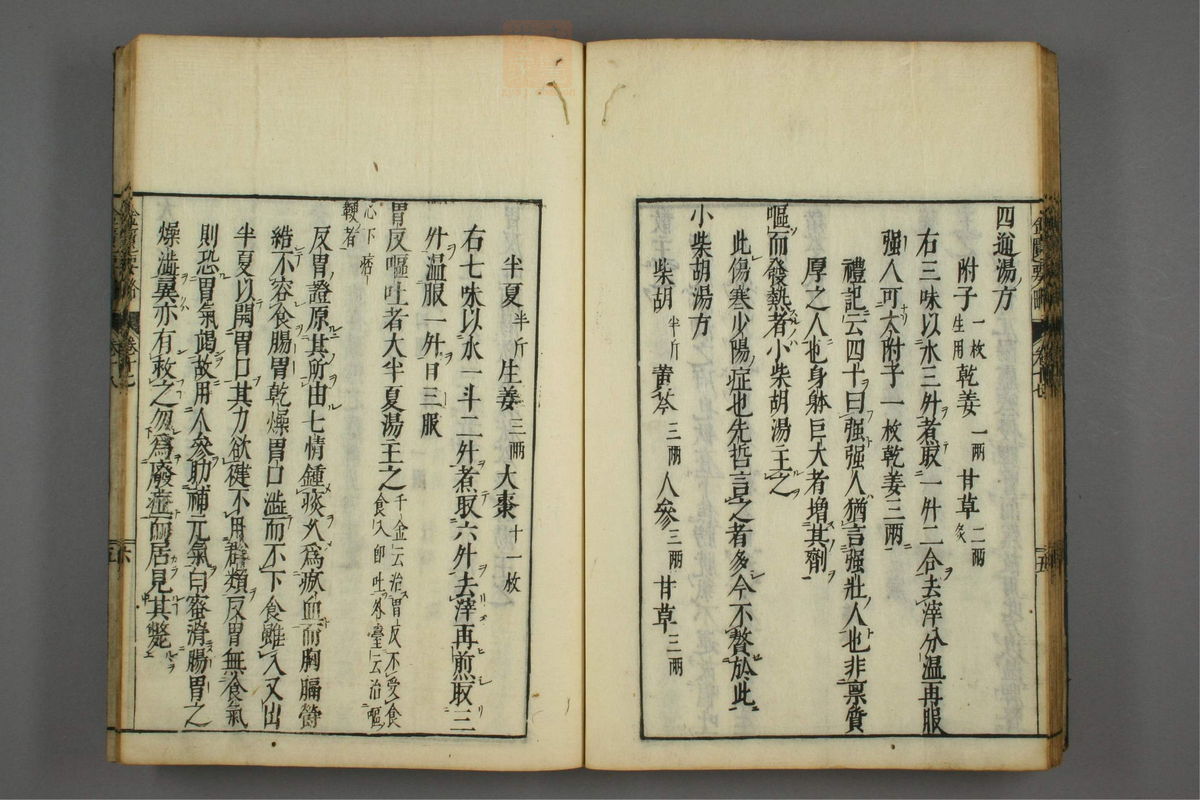 四逆湯方
附子一枚生用乾姜一兩甘草二兩炙
右三味以水三升煮取一升二合去滓分溫再服
强人可大附子一枚乾姜三兩
禮記云四十曰强强人猶言强壯人也非禀質
厚之人也身躰巨大者增其劑
嘔而發熱者小柴胡湯主之
此傷寒少陽症也先哲言之者多今不贅於此
小柴胡湯方
柴胡半斤黃芩三兩人參三兩甘草三兩
半夏半斤生姜三兩大棗十一枚
右七味以水一斗二升煮取六升去滓再煎取三
升温服一升日三服
胃反嘔吐者大半夏湯主之千金云治胃反不受食食入即吐外臺云治嘔
心下痞鞕者
反胃證原其所由七情鍾痰火爲瘀血而胸膈鬱
結不容食腸胃乾燥胃口澁而不下食雖入又出
半夏以開胃口其力欲健不用群類反胃無食氣
則恐胃氣竭故用人參助補元氣白蜜滑腸胃之
燥澁冀亦有救之勿爲廢壺而居見其斃